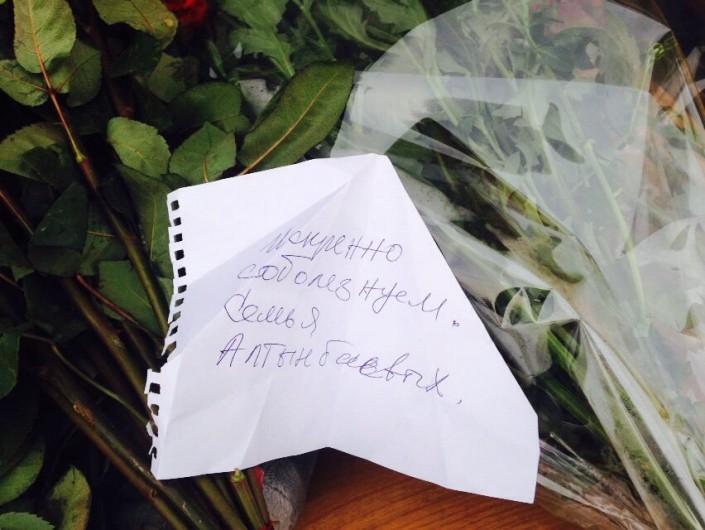 искренно
соболезнуем.
Семья
Алтынбаевых.